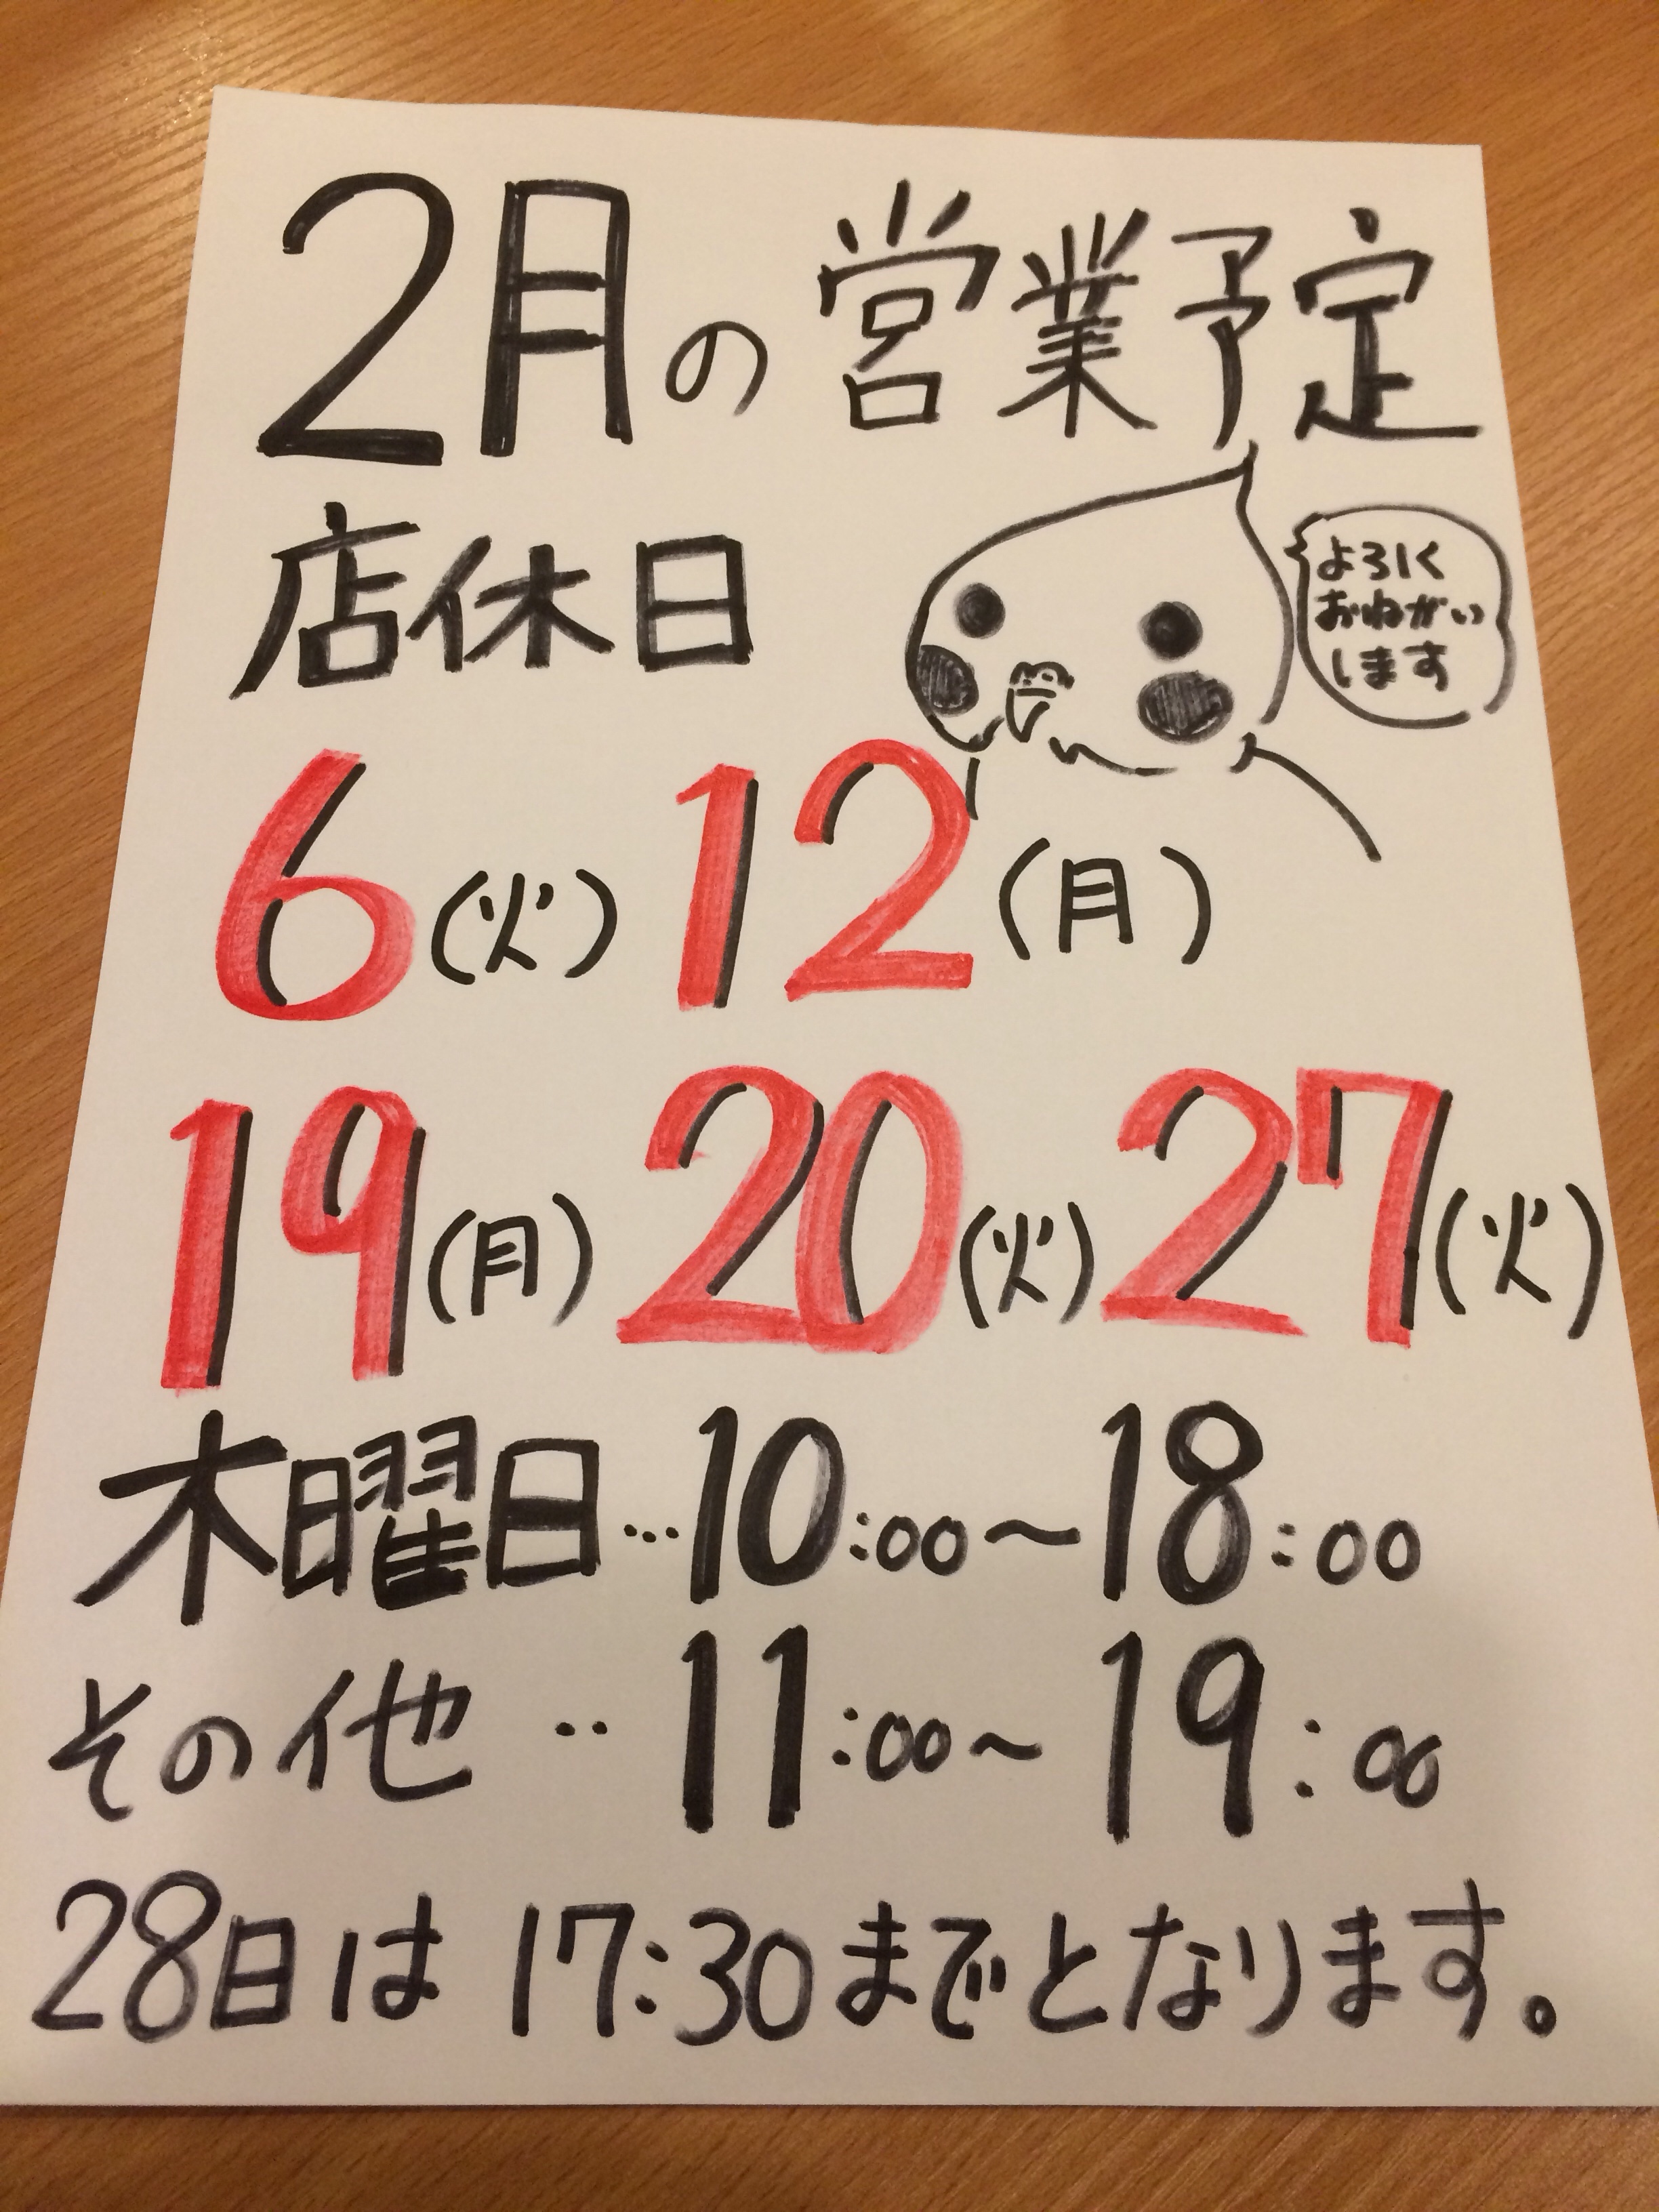 2月の営業予定
店休日
よろしく
おねがい
します
6(火) 12(月)
19(月) 20(火) 27(火)
木曜日…10:00～18:00
その他‥11:00～19:00
28日は17:30までとなります。